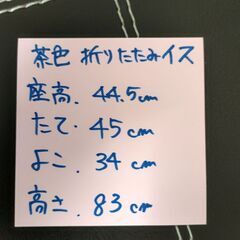 茶色 折りたたみイス
座高. 44.5cm
たて. 45cm
よこ. 34cm
高さ. 83cm